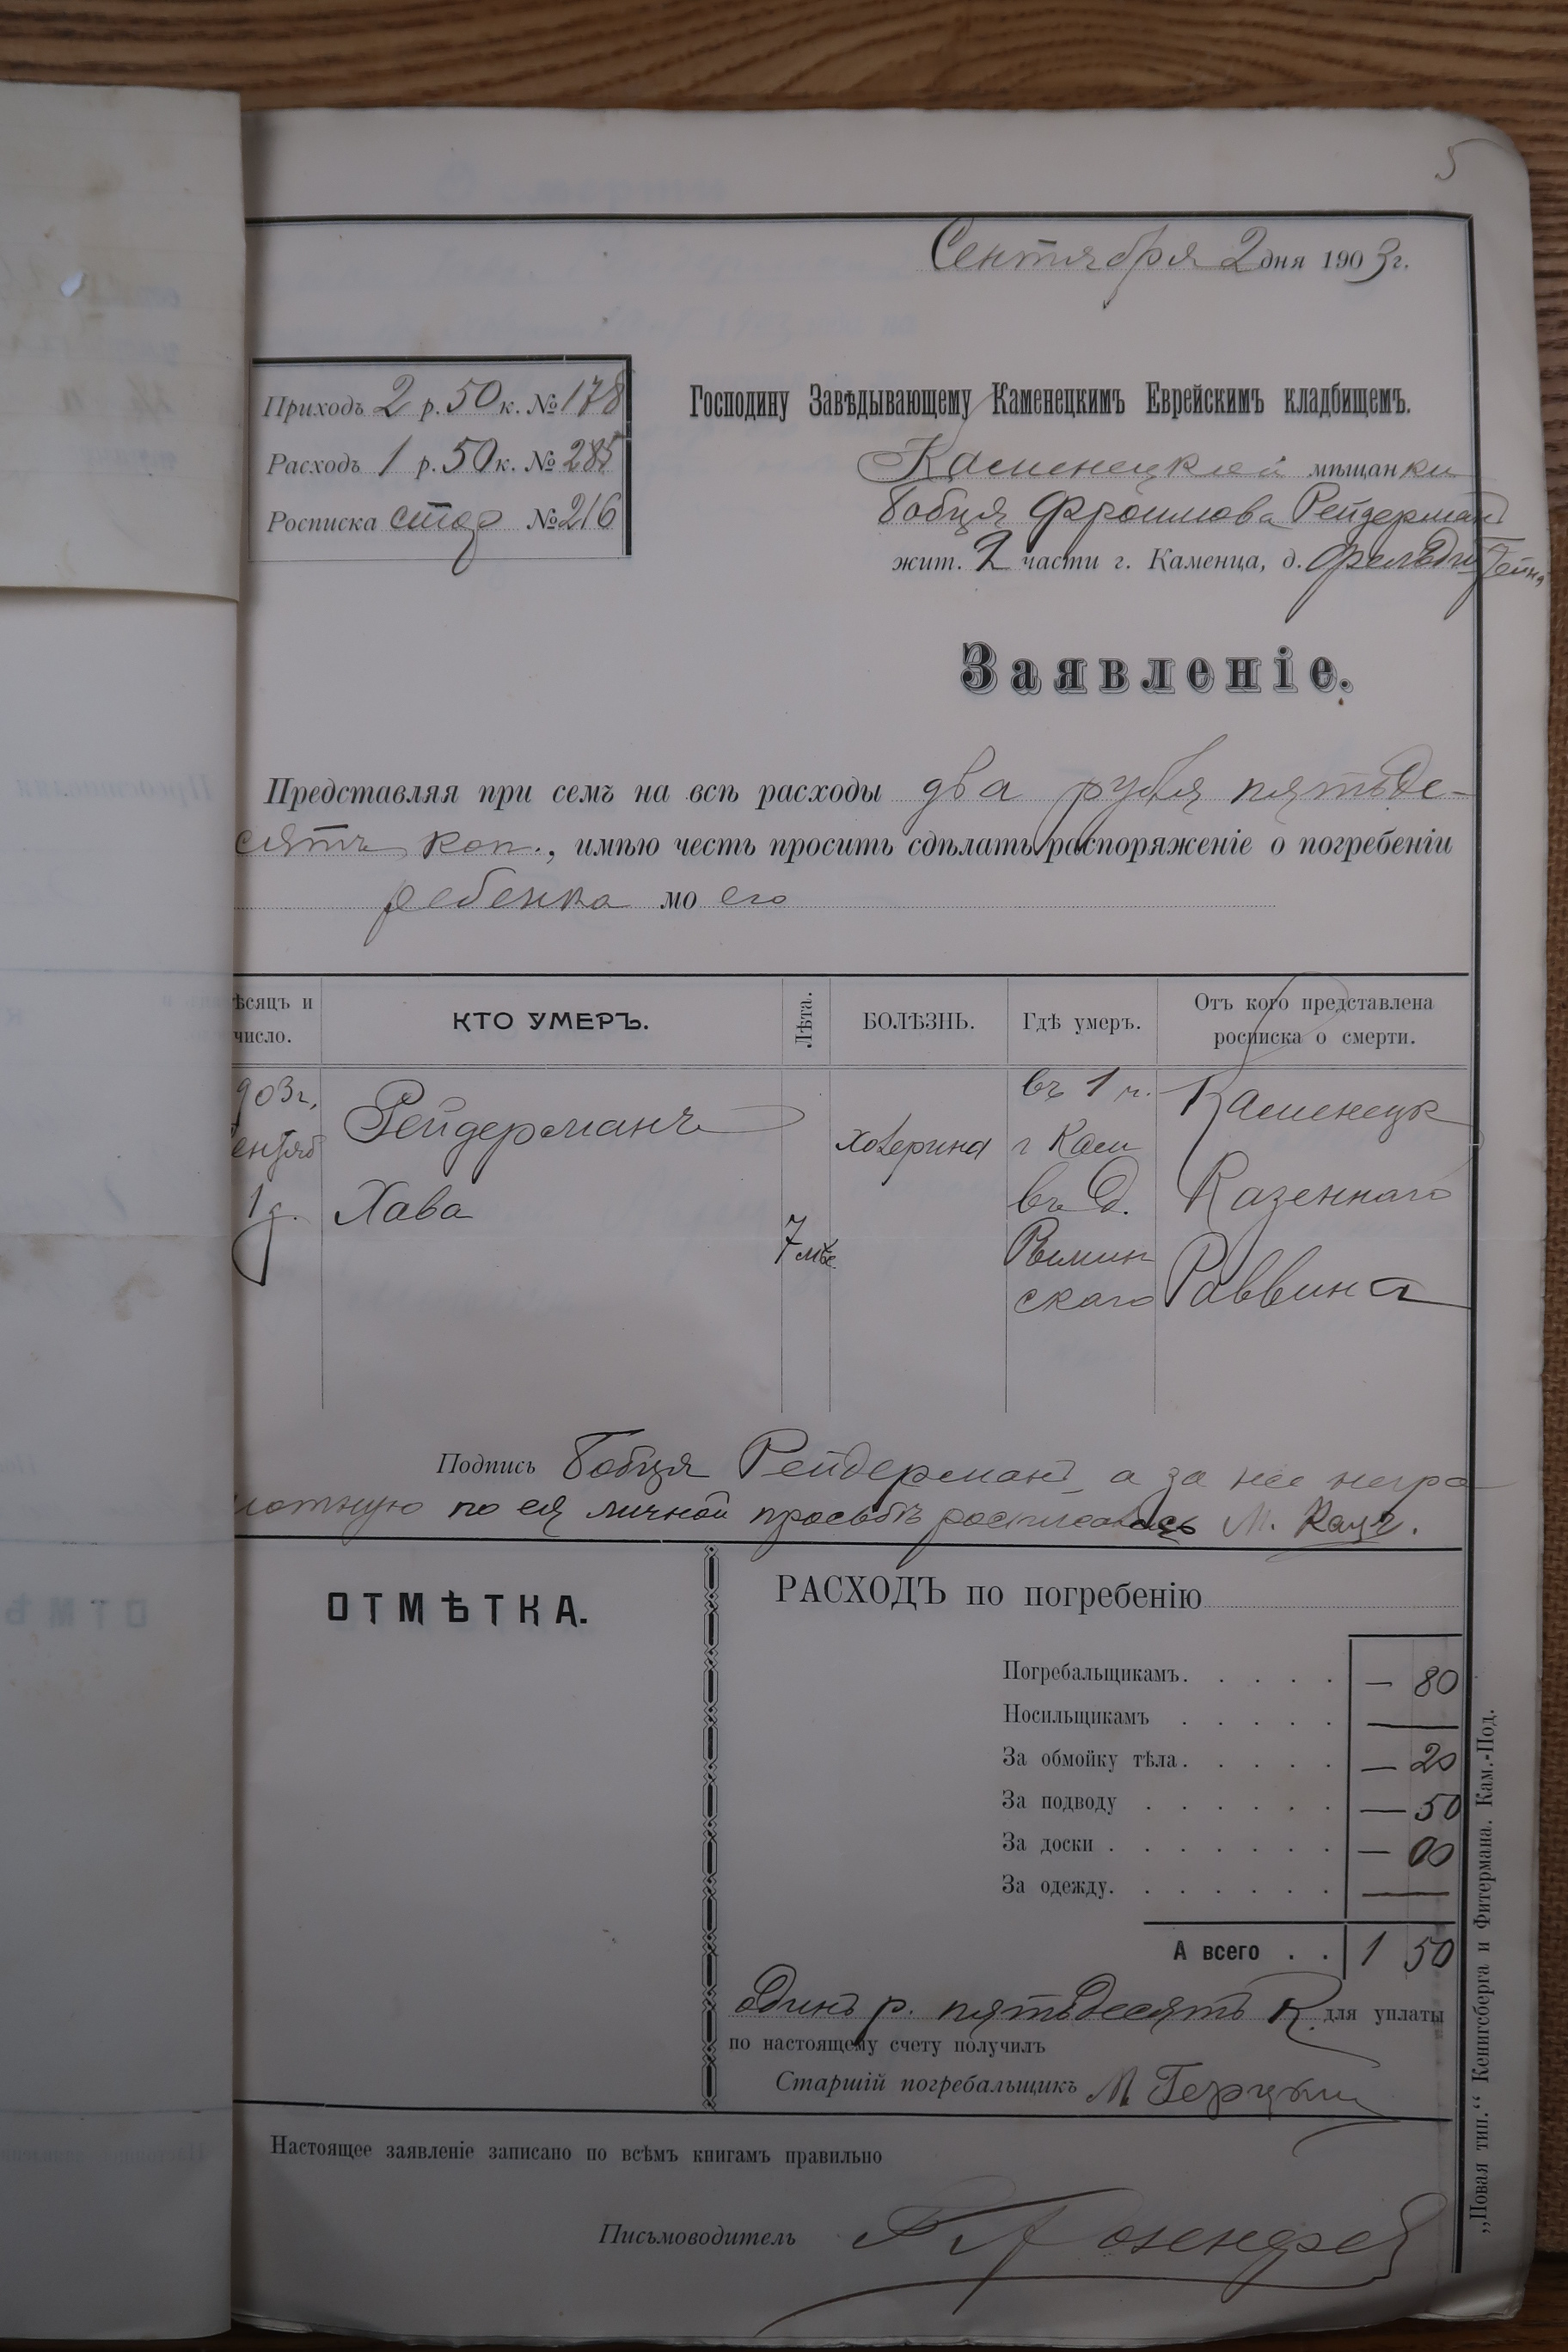 5
Сентября 2 дня 1903 г.
Приходъ 2 р. 50 к. № 178
Расходъ 1 р. 50 к. № 285
Росписка стар № 216
Господину Завѣдывающему Каменецкимъ Еврейскимъ кладбищемъ.
Каменецкой мѣщанки
Бобця Фроимова Рейдерман
жит. 2 части г. Каменца, д.
Заявленіе.
Представляя при семъ на всѣ расходы два рубля пятьде-
сятъ коп., имѣю честь просить сдѣлать распоряженіе о погребеніи
ребенка моего
ѣсяцъ и число.
КТО УМЕРЪ.
Лѣта.
БОЛѢЗНЬ.
Гдѣ умеръ.
Отъ кого представлена росписка о смерти.
903 г.
ентяб
1 д.
Рейдерманъ
Хава
7 мѣс.
холерина
въ 1 ч.
г Кам
въ д.
Римин
скаго
Каменецк
Казеннаго
Раввина
Подпись Бобця Рейдерманъ а за нее негра
мотную по ея личной просьбѣ росписалась М. Кацъ.
ОТМѢТКА.
РАСХОДЪ по погребенію
Погребальщикамъ. — 80
Носильщикамъ —
За обмойку тѣла. — 20
За подводу — 50
За доски . — 00
За одежду. —
А всего . . 1 50
Одинъ р. пятьдесятъ К. для уплаты
по настоящему счету получилъ
Старшій погребальщикъ М.
Настоящее заявленіе записано по всѣмъ книгамъ правильно
Письмоводитель
„Новая тип.“ Кенигсберга и Фитермана. Кам.-Под.